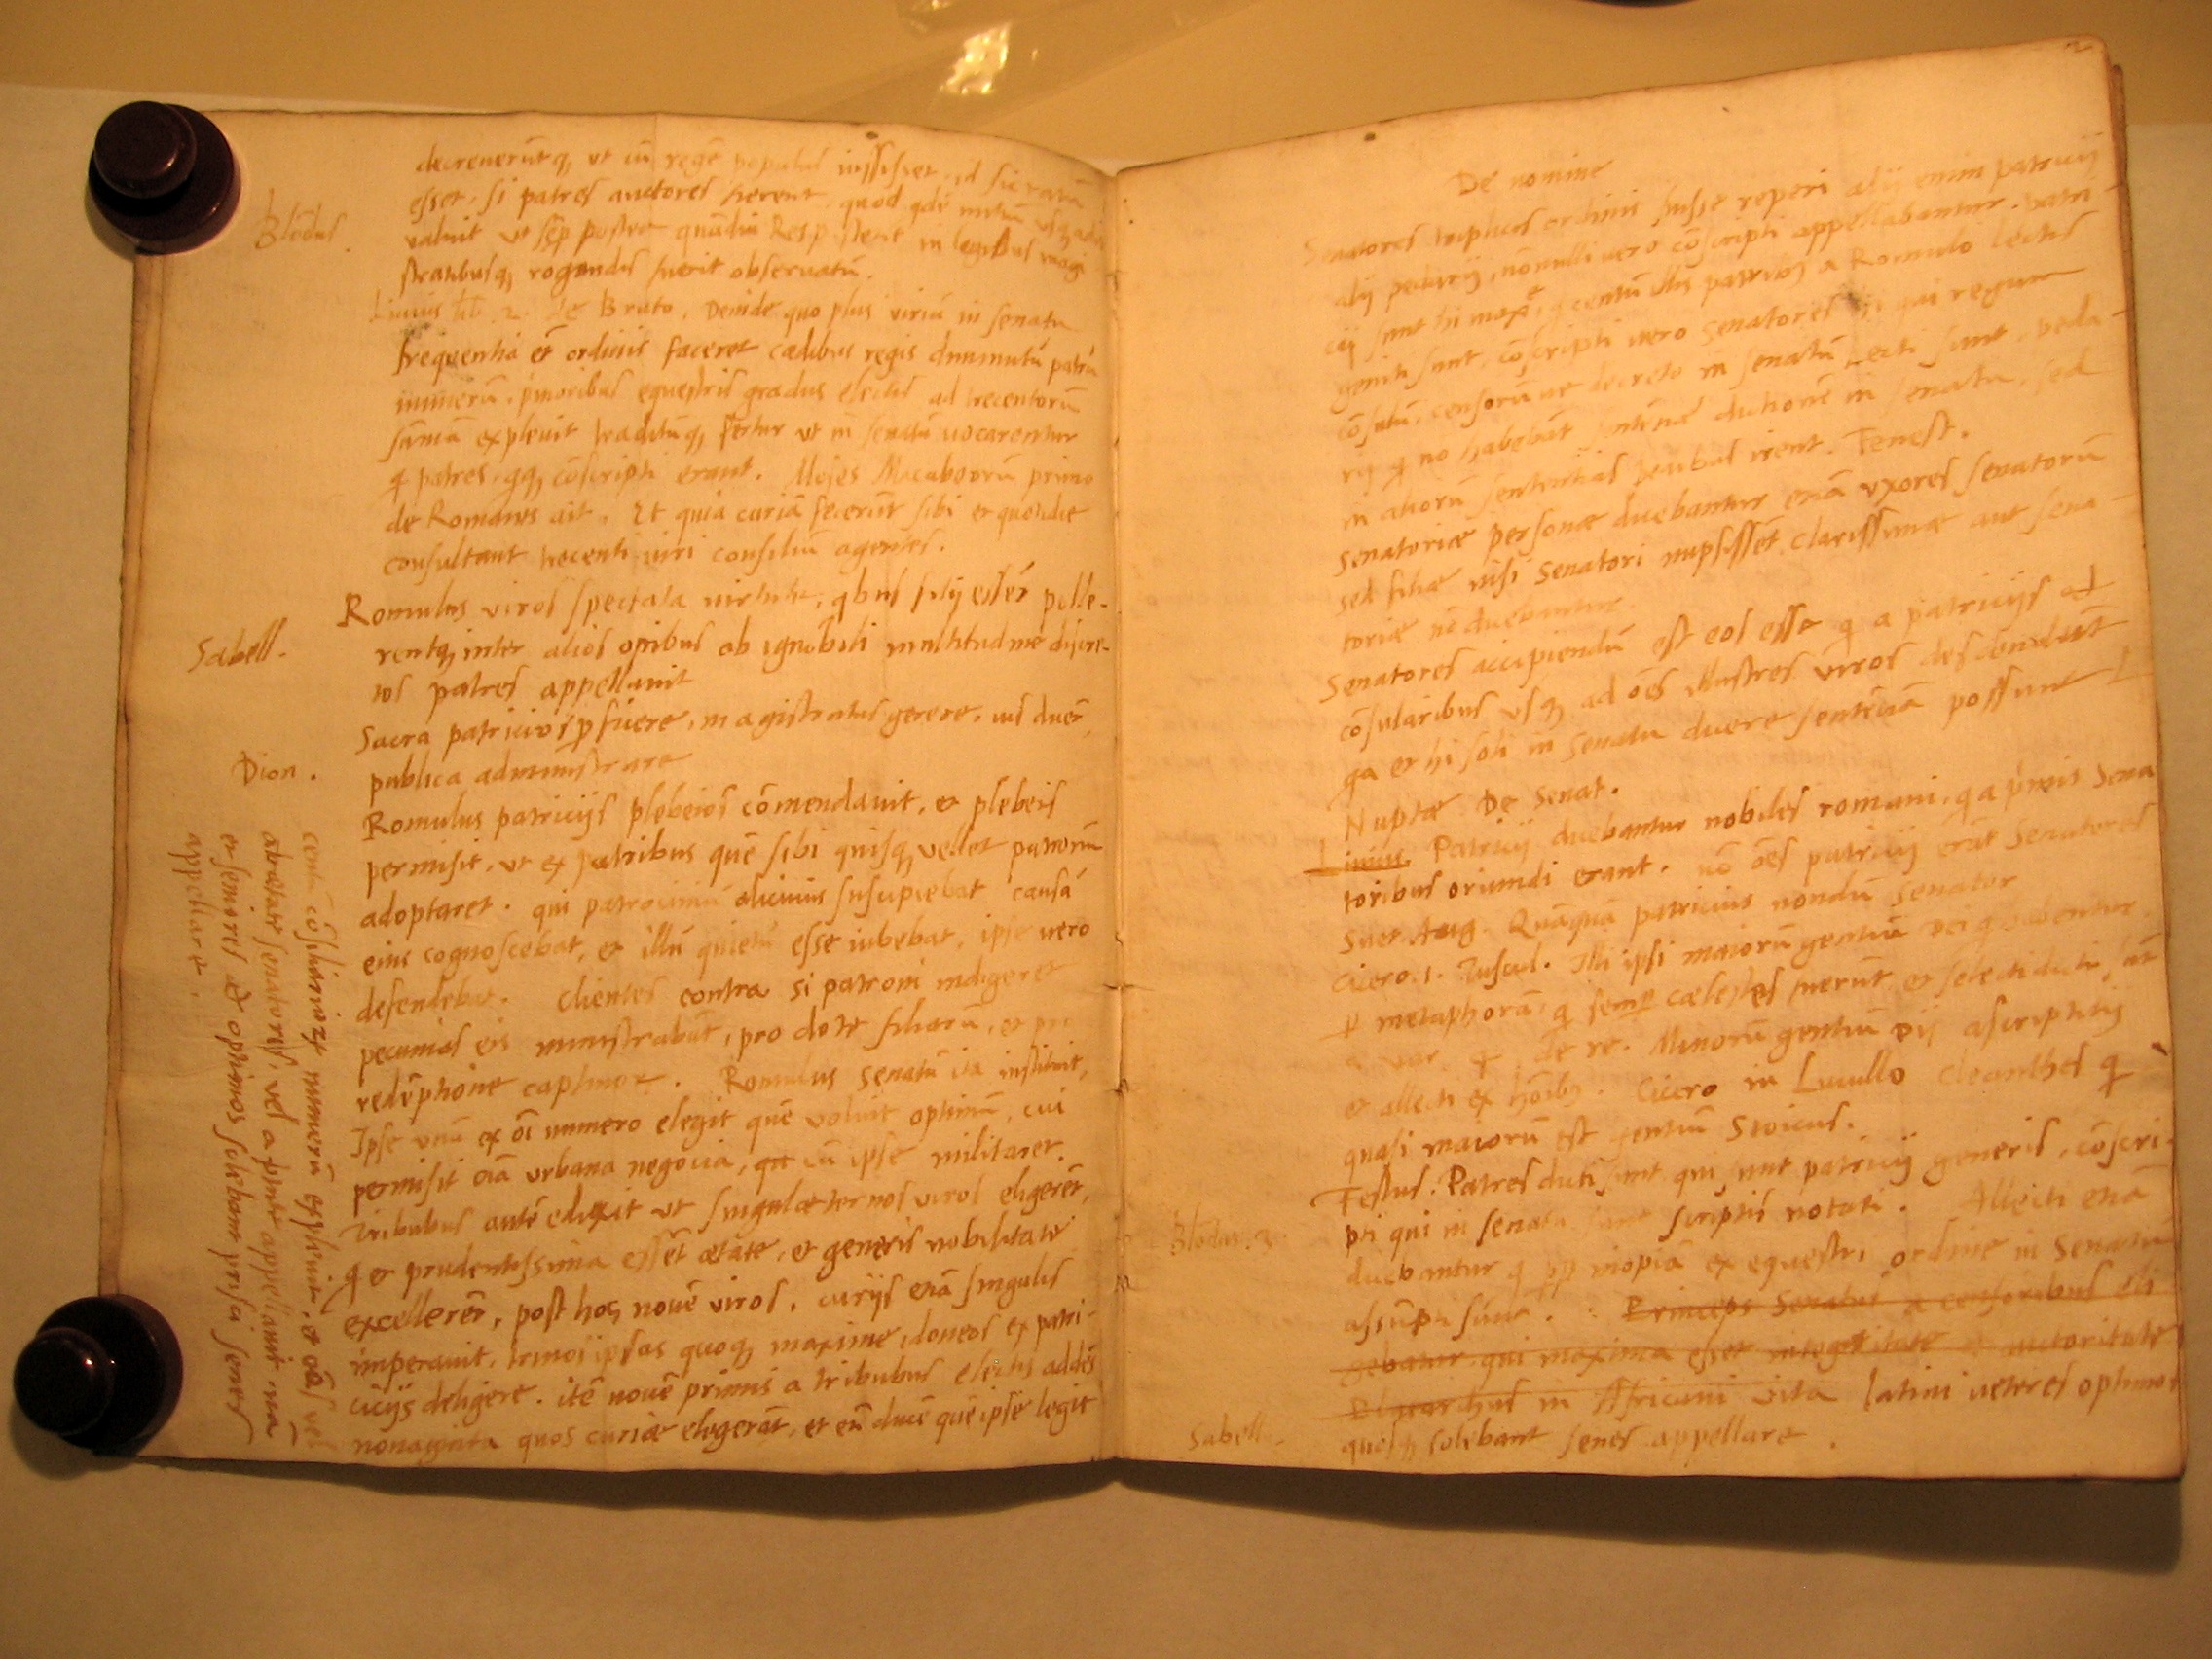 decreuerūtq, ut cū regē populus iussisset, id sic ratū
esset, si patres auctores fierent. quod
Blōdus.
valuit ut sēp postea quādiu Resp. in legibus magi
stratibusq, rogandis fuerit obseruatū.
Liuius lib. 2. de Bruto. Deinde quo plus viriū in senatu
frequentia ēt ordinis faceret cædibus regis diminutū patrū
numerū, primoribus equestris gradus electis ad trecentorū
sūmā expleuit traditūq, fertur ut in senatū uocarentur
q patres, qq, cōscripti erant. Macabeorū primo
de Romanis ait. Et quia curiā fecerūt sibi et quotidie
consultant trecenti uiri consiliū agentes.
Romulus viros spectata uirtute, qbus filij essēt polle-
Sabell.
rentq, inter alios opibus ab ignobili multitudine discre-
tos patres appellauit
Sacra patricios fuere, magistratus gerere, ius
Dion.
publica administrare
Romulus patricijs plebeios cōmendauit, et plebeis
permisit, ut ex patribus quē sibi quisq, vellet patronū
adoptaret. qui patrociniū alicuius suscipiebat causā
eius cognoscebat, et illū quietū esse iubebat, ipse uero
defendebat. Clientes contra si patroni indigeret
pecunias eis ministrabāt, pro dote filiarū, et pro
redēptione Romulus senatū ita instituit,
Ipse vnū ex oī numero elegit quē voluit optimū, cui
permisit oīa vrbana negocia, qn cū ipse militaret.
Tribubus autē edixit ut singulæ ternos viros eligerēt,
q et prudentissima essēt ætate, et generis nobilitate
excellerēt, post hos nouē viros, curijs etiā singulis
imperauit, trinos ipsas quoq, maxime idoneos ex patri-
cijs deligere. itē nouē primis a tribubus electis addēs
nonaginta quos curiæ elegerāt, et eū ducē quē ipse legit
centū cōsiliariorū numerū expleuit, et eos vel
ab ætate senatores, vel a virtute appellauit. nā
et seniores et optimos solebant prisci senes
appellare.
2
De nomine
Senatores triplicis ordinis fuisse reperi alij enim patricij
alij pedarij, nōnulli uero cōscripti appellabantur. patri
cij sunt hi maxē, q centū illis patribus a Romulo lectis
geniti sunt, cōscripti uero senatores ij qui regum
cōsulū, censorū ue decreto in senatū lecti sunt, peda
rij q no habebāt sentētiæ dictionē in senatu, sed
in aliorū sententias pedibus irent. Fenest.
Senatoriæ personæ dicebantur etiā vxores senatorū
sed filiæ nisi Senatori nupsissēt clarissimæ aut sena-
toriæ nō dicebantur.
Senatores accipiendū est eos esse q a patricijs et
cōsularibus vsq, ad ōēs illustres viros descendūt
ga et hi soli in senatu dicere sentētiā possunt L
Nuptæ De Senat.
Liuius. Patricij dicebantur nobiles romani, q a primis sena
toribus oriundi erant. nō ōēs patricij erāt senatores
Suet. Aug. Quāquā patricius nondū senator
Cicero. 1. Tuscul. Illi ipsi maiorū gentiū Dei q habentur.
metaphorā, q semp cælestes fuerūt et selecti dicti sūt
de re. Minorū gentiū Dij ascriptitij
et allecti ex hōībs. Cicero in Lucullo Cleanthes q
quasi maiorū est gentiū Stoicus.
Festus. Patres dicti sunt qui sunt patricij generis, cōscri-
pti qui in senatu sunt scriptis notati. Allecti etiā
Blōdus. 3.
dicebantur q pp inopiā ex equestri ordine in senatū
assūpti sunt. Princeps Senatus a censoribus eli
gebatur, qui maxima esset integritate et autoritate
Plutarchus in Africani vita latini ueteres optimos
Sabell.
quosq, solebant senes appellare.